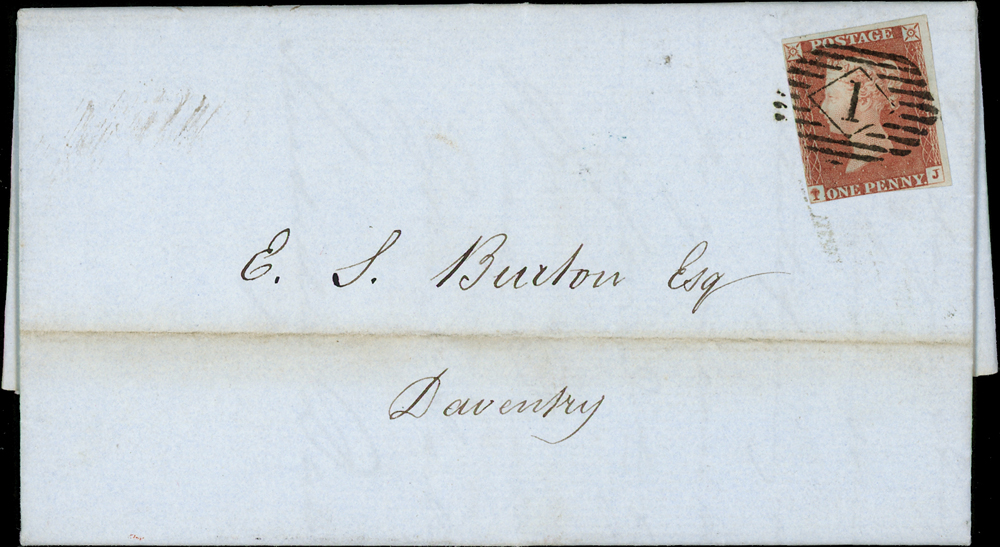 POSTAGE
1
J
ONE PENNY.
E. S. Burton Esq
Daventry